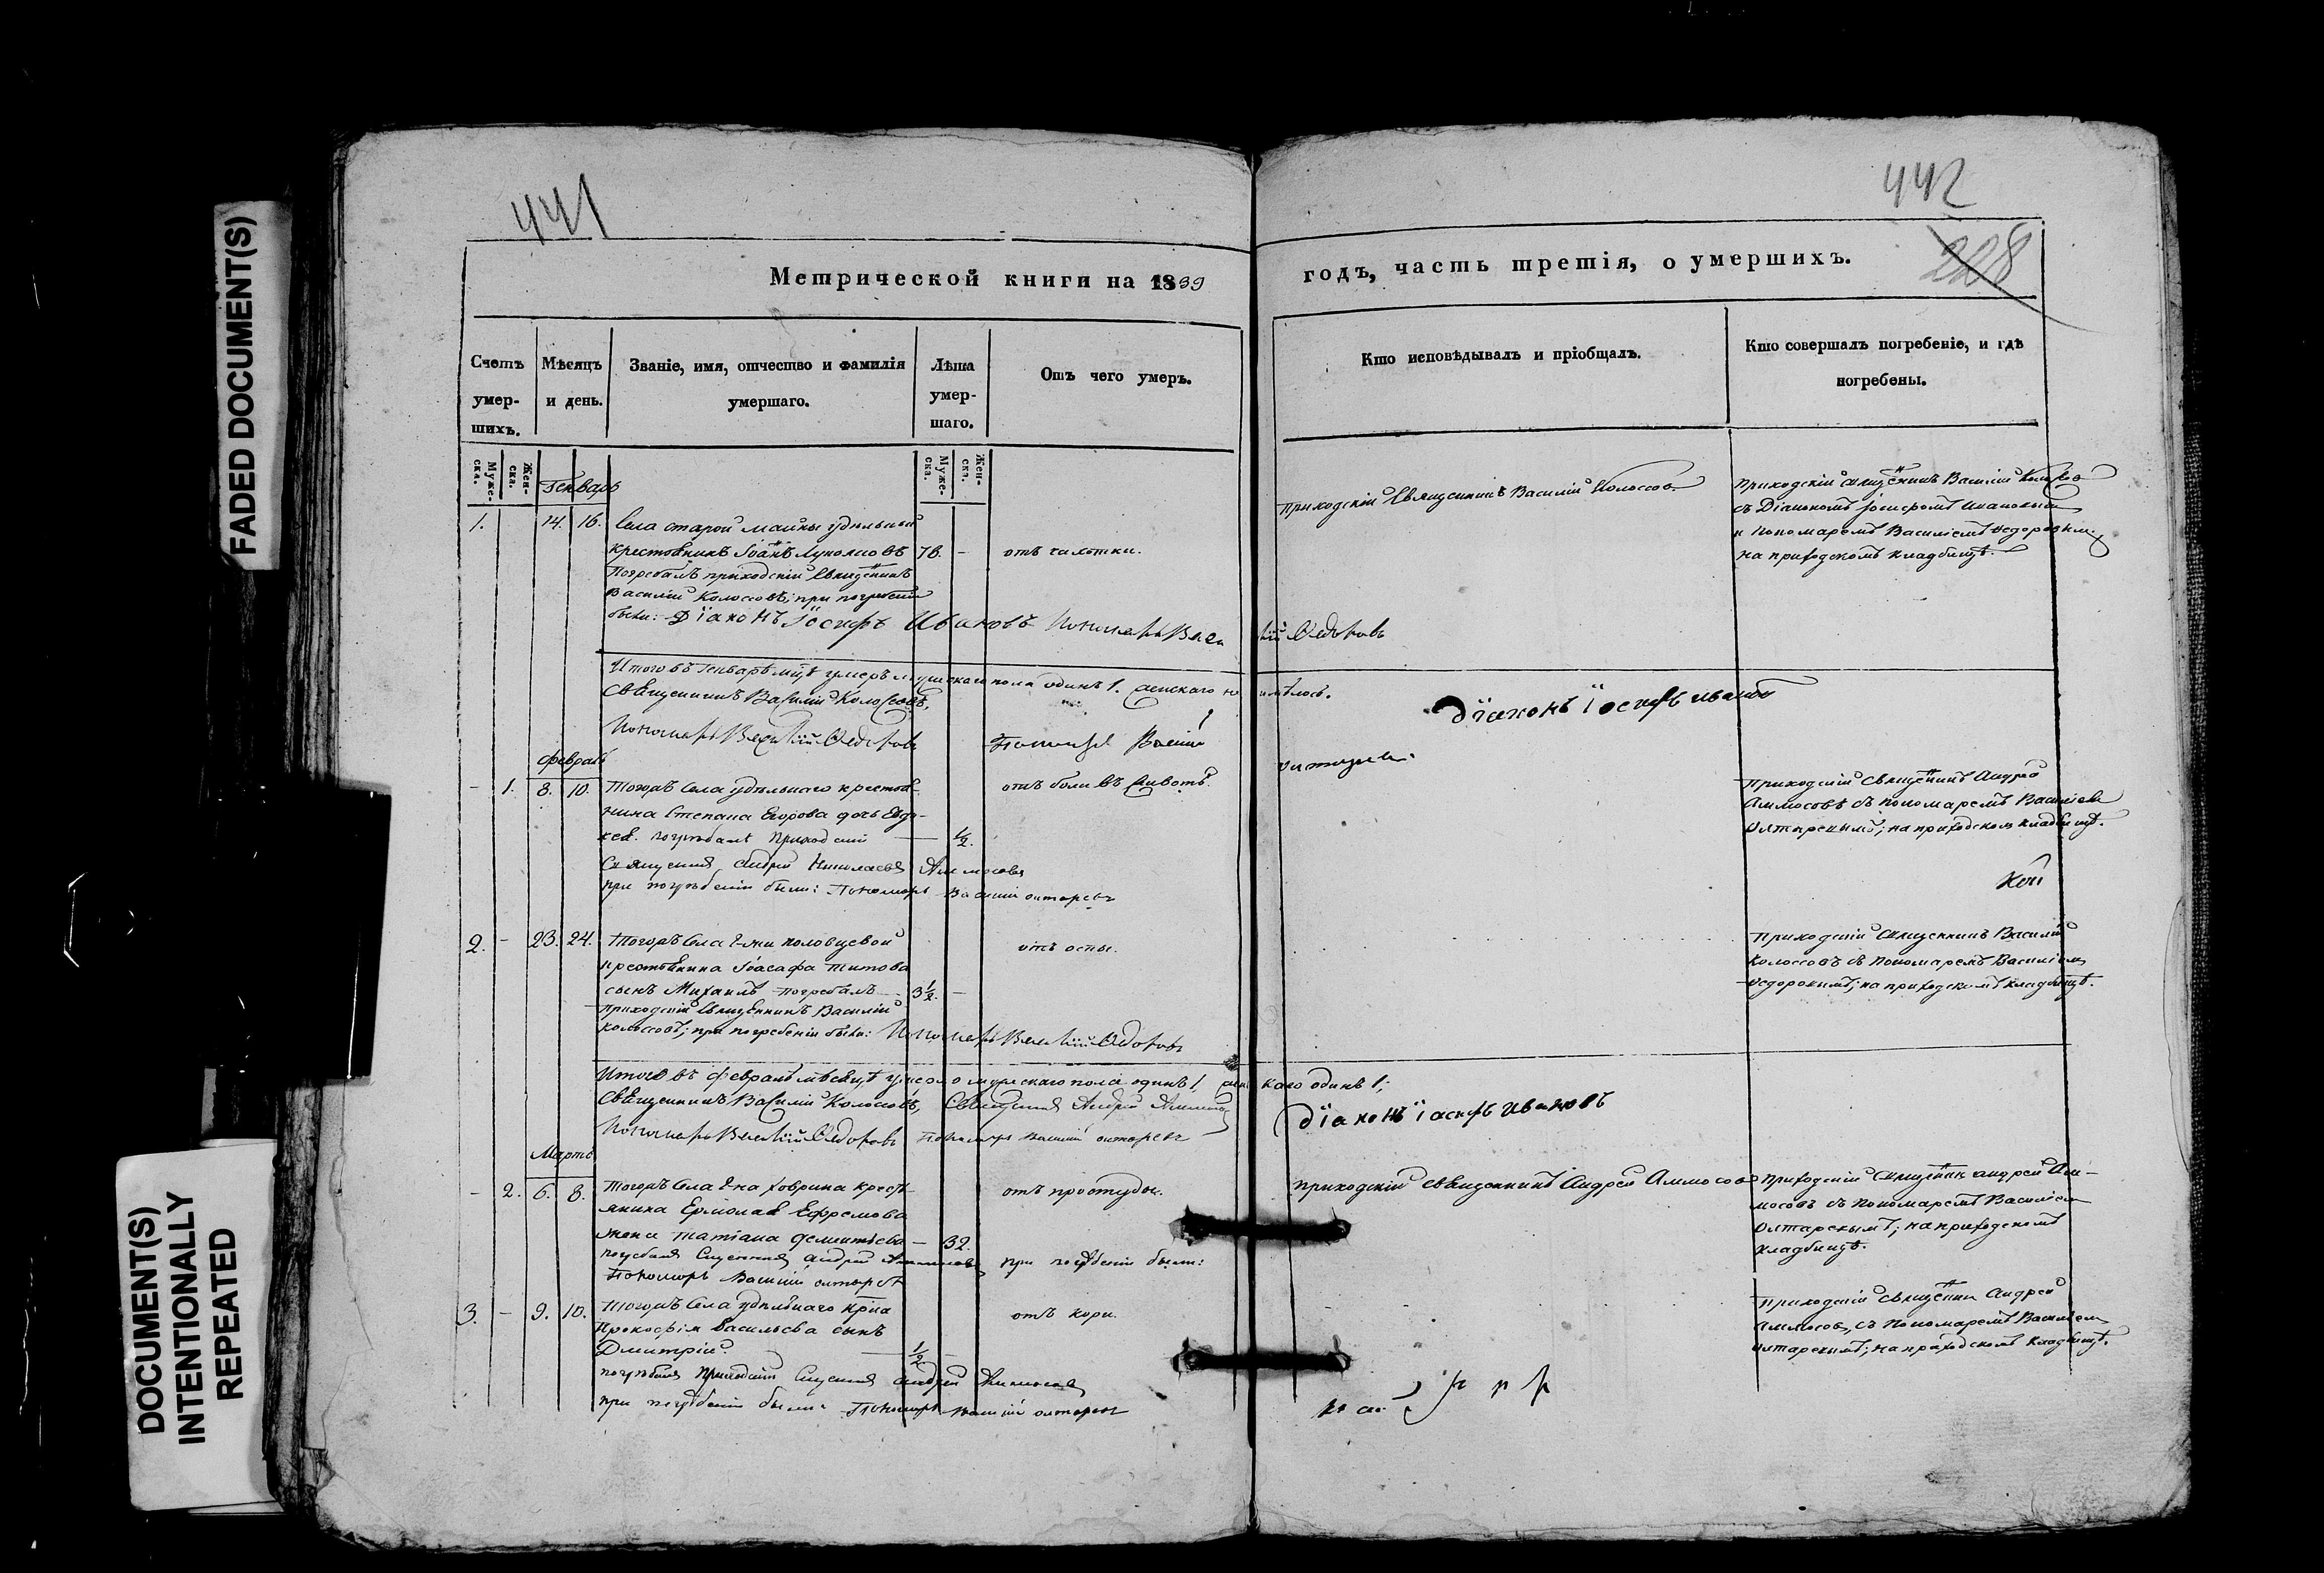 FADED DOCUMENT(S)
DOCUMENT(S)
INTENTIONALLY
REPEATED
441
442
228
Метрической книги на 1839
годъ, часть третія, о умершихъ.
Счетъ умер-шихъ.
Мѣсяцъ и день.
Званіе, имя, отчество и фамилія умершаго.
Лѣта умер-шаго.
Отъ чего умеръ.
Кто исповѣдывалъ и пріобщалъ.
Кто совершалъ погребеніе, и гдѣ погребены.
Муже-ска.
Жен-ска.
Муже-ска.
Жен-ска.
Генварь
1. 14. 16. Села старой маины удѣльный
крестьянинъ Іоаннъ 78. - отъ чахотки.
Погребалъ приходскій Священникъ
Василій Колоссовъ; при погребеніи
были: Діаконъ Іосифъ Ивановъ Пономарь Василій Ѳедоровъ
Приходскій Священникъ Василій Колоссовъ
Приходскій священникъ Василій
съ Діакономъ Іосифомъ Ивановымъ
и Пономаремъ Василіемъ Ѳедоровымъ
на приходскомъ кладбищѣ.
Итого въ Генварѣ мцѣ умеръ мужескаго пола одинъ 1. женскаго не имѣлось.
Священникъ Василій Колоссовъ,
Діаконъ Іосифъ Ивановъ
Пономарь Василій Ѳедоровъ Пономарь Василій
Февраль
- 1. 8. 10. Тогожъ Села удѣльнаго крестья-
нина Степана Егорова дочь Евдо-
кея. погребалъ приходскій — 1/2.
отъ боли въ животѣ.
Священникъ Андрей Николаевъ Аммосовъ
при погребеніи были: Пономарь Василій олтаревъ
Приходскій Священникъ Андрей
Аммосовъ съ пономаремъ Василіемъ
Олтаревымъ; на приходскомъ кладбищѣ.
2. - 23. 24. Тогожъ Села Г-жи половцевой
крестьянина Іоасафа Титова
сынъ Михаилъ погребалъ 3 1/2. -
отъ оспы.
Приходскій Священникъ Василій
Колоссовъ; при погребеніи были: Пономарь Василій Ѳедоровъ
Приходскій Священникъ Василій
Колоссовъ съ Пономаремъ Василіемъ
Ѳедоровымъ; на приходскомъ кладбищѣ.
Итого въ Февралѣ мѣсяцѣ умерло мужескаго пола одинъ 1 женскаго одинъ 1;
Священникъ Василій Колоссовъ, Священникъ Андрей Аммосовъ
Діаконъ Іосифъ Ивановъ
Пономарь Василій Ѳедоровъ Пономарь Василій олтаревъ
Мартъ
- 2. 6. 8. Тогожъ Села Г-на Ховрина кресть-
янина Ермолая Ефремова
жена Татіана Дементьева — 32.
отъ простуды.
погребалъ Священникъ Андрей Аммосовъ при погребеніи были:
Пономарь Василій олтаревъ
Приходскій Священникъ Андрей Аммосовъ
Приходскій Священникъ Андрей Ам-
мосовъ съ Пономаремъ Василіемъ
Олтаревымъ; на приходскомъ
кладбищѣ.
3. - 9. 10. Тогожъ Села удѣльнаго
Прокофія Васильева сынъ
Дмитрій. 1/2 -
отъ кори.
погребалъ приходскій Священникъ Андрей Аммосовъ
при погребеніи были: Пономарь Василій олтаревъ
Приходскій Священникъ Андрей
Аммосовъ, съ Пономаремъ Василіемъ
Олтаревымъ; на приходскомъ кладбищѣ.